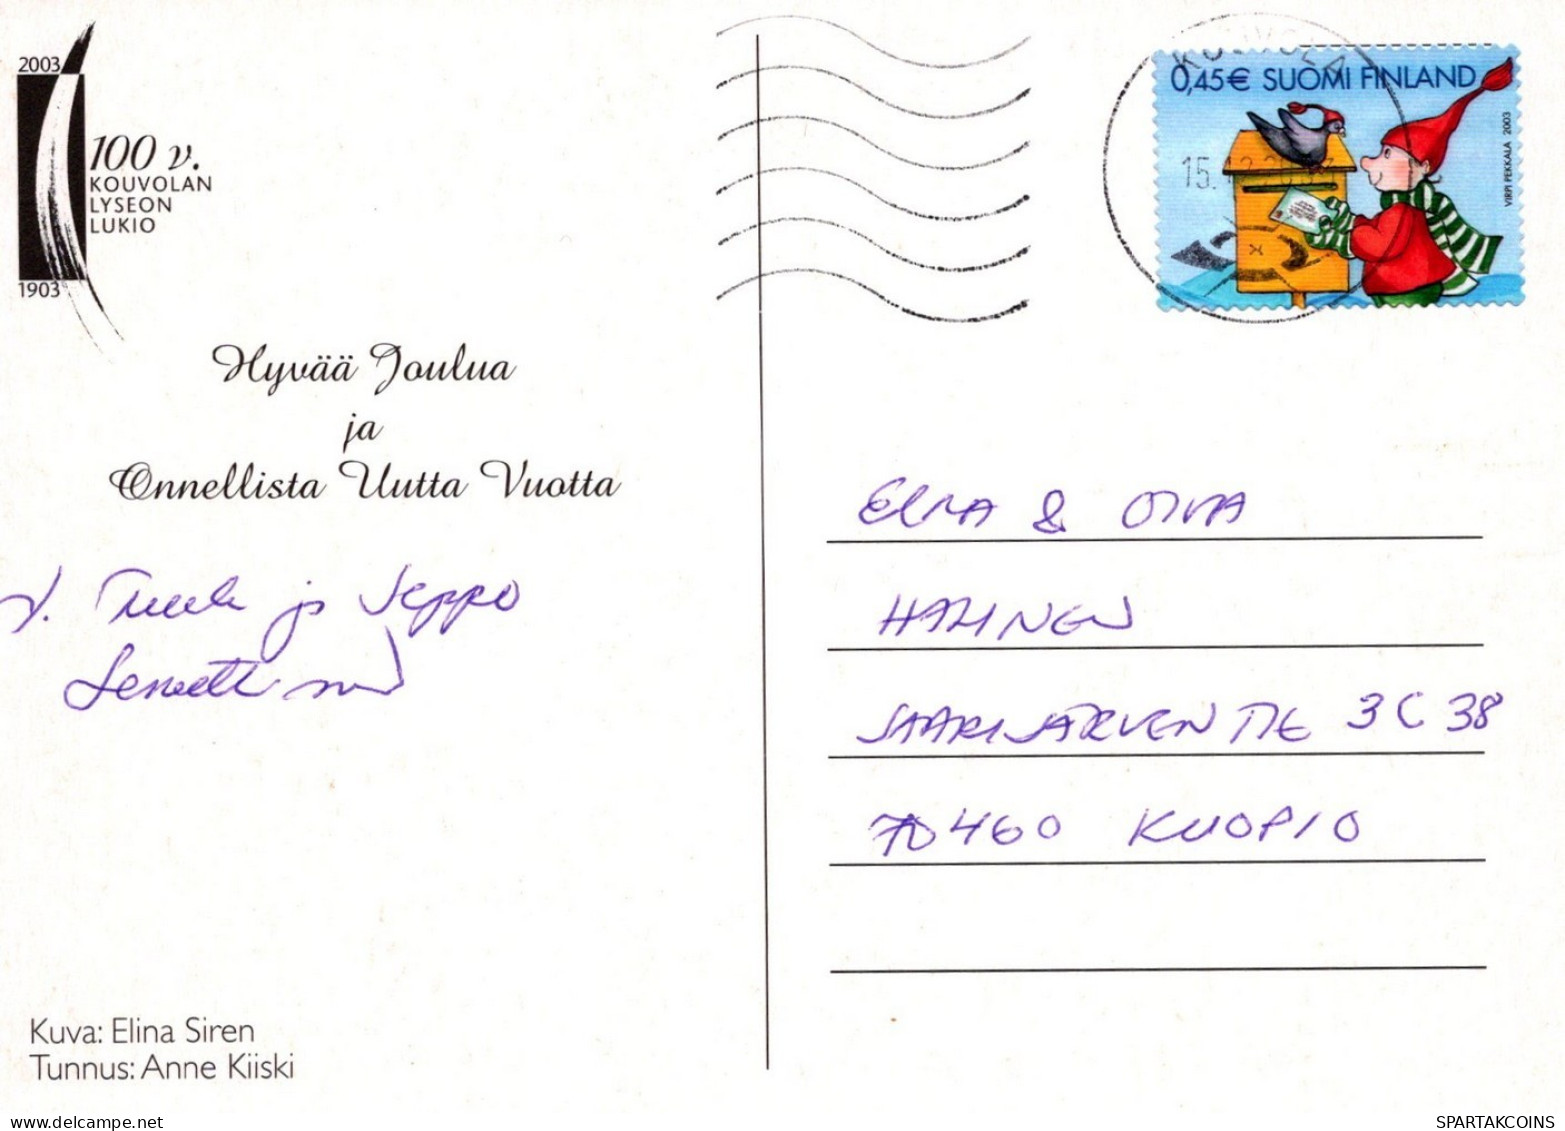 2003
100 v.
KOUVOLAN
LYSEON
LUKIO
1903
Hyvää Joulua
ja
Onnellista Uutta Vuotta
T. Tuula ja Seppo
Kuva: Elina Siren
Tunnus: Anne Kiiski
KOUVOLA
15.12.2003
0,45€ SUOMI FINLAND
VIRPI PEKKALA 2003
ELMA & OIVA
HALINEN
SAARIJÄRVENTIE 3 C 38
70460 KUOPIO
SPARTAKCOINS